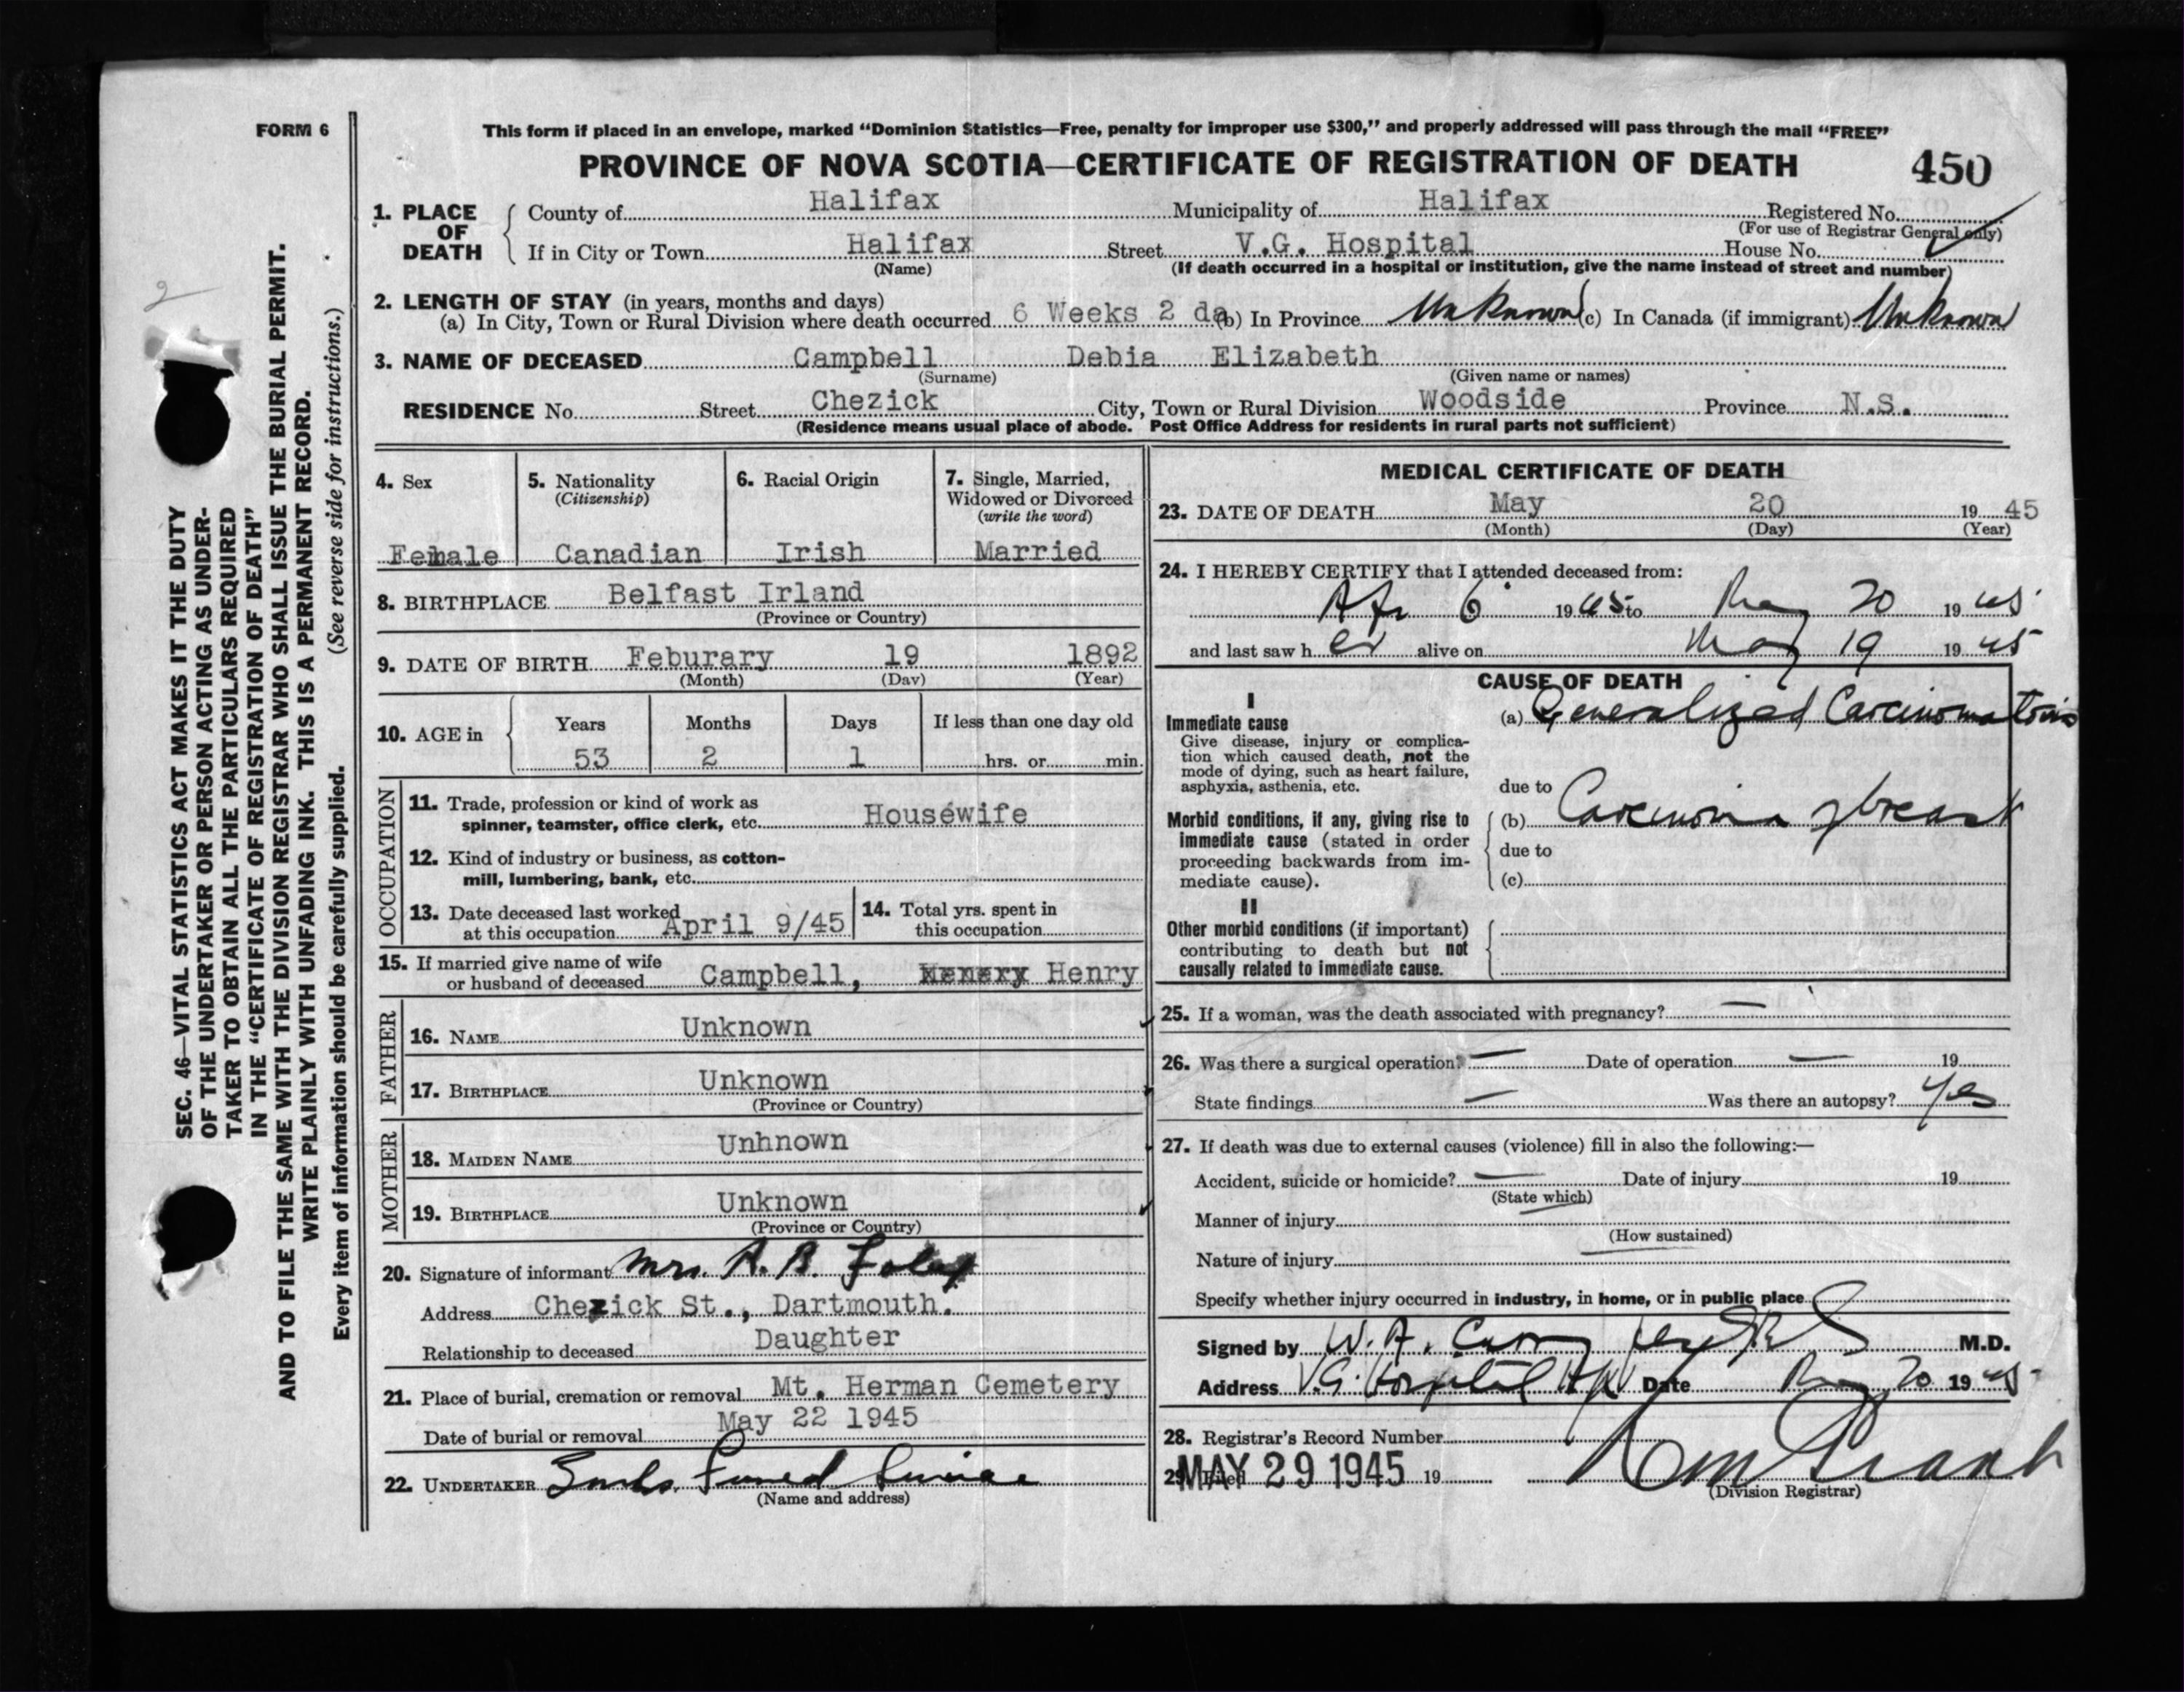 FORM 6
This form if placed in an envelope, marked “Dominion Statistics—Free, penalty for improper use $300,” and properly addressed will pass through the mail “FREE”
PROVINCE OF NOVA SCOTIA—CERTIFICATE OF REGISTRATION OF DEATH 450
1. PLACE OF DEATH
County of Halifax Municipality of Halifax Registered No.
(For use of Registrar General only)
If in City or Town Halifax Street V.G. Hospital House No.
(Name) (If death occurred in a hospital or institution, give the name instead of street and number)
2. LENGTH OF STAY (in years, months and days)
(a) In City, Town or Rural Division where death occurred 6 Weeks 2 da (b) In Province Unknown (c) In Canada (if immigrant) Unknown
3. NAME OF DECEASED Campbell Debia Elizabeth
(Surname) (Given name or names)
RESIDENCE No. Street Chezick City, Town or Rural Division Woodside Province N.S.
(Residence means usual place of abode. Post Office Address for residents in rural parts not sufficient)
4. Sex
Female
5. Nationality
(Citizenship)
Canadian
6. Racial Origin
Irish
7. Single, Married,
Widowed or Divorced
(write the word)
Married
8. BIRTHPLACE Belfast Irland
(Province or Country)
9. DATE OF BIRTH Feburary 19 1892
(Month) (Day) (Year)
10. AGE in
Years Months Days If less than one day old
53 2 1 hrs. or min.
OCCUPATION
11. Trade, profession or kind of work as
spinner, teamster, office clerk, etc. Housewife
12. Kind of industry or business, as cotton-
mill, lumbering, bank, etc.
13. Date deceased last worked
at this occupation April 9/45
14. Total yrs. spent in
this occupation
15. If married give name of wife
or husband of deceased Campbell, Henry
FATHER
16. NAME Unknown
17. BIRTHPLACE Unknown
(Province or Country)
MOTHER
18. MAIDEN NAME Unhnown
19. BIRTHPLACE Unknown
(Province or Country)
20. Signature of informant Mrs. A. B. Foley
Address Chezick St., Dartmouth.
Relationship to deceased Daughter
21. Place of burial, cremation or removal Mt. Herman Cemetery
Date of burial or removal May 22 1945
22. UNDERTAKER Funeral Service
(Name and address)
MEDICAL CERTIFICATE OF DEATH
23. DATE OF DEATH May 20 19 45
(Month) (Day) (Year)
24. I HEREBY CERTIFY that I attended deceased from:
Apr 6 19 45 to May 20 19 45
and last saw h er alive on May 19 19 45
CAUSE OF DEATH
I
Immediate cause
Give disease, injury or complica-
tion which caused death, not the
mode of dying, such as heart failure,
asphyxia, asthenia, etc.
(a) Generalized Carcinomatosis
due to
Morbid conditions, if any, giving rise to
immediate cause (stated in order
proceeding backwards from im-
mediate cause).
(b) Carcinoma of breast
due to
(c)
II
Other morbid conditions (if important)
contributing to death but not
causally related to immediate cause.
25. If a woman, was the death associated with pregnancy? —
26. Was there a surgical operation? — Date of operation — 19
State findings — Was there an autopsy? Yes
27. If death was due to external causes (violence) fill in also the following:—
Accident, suicide or homicide? — Date of injury 19
(State which)
Manner of injury
(How sustained)
Nature of injury
Specify whether injury occurred in industry, in home, or in public place
Signed by W. A. Curry M.D.
Address V.G. Hospital Hfx Date May 20 19 45
28. Registrar's Record Number
29. Filed MAY 29 1945 19
(Division Registrar)
SEC. 46—VITAL STATISTICS ACT MAKES IT THE DUTY
OF THE UNDERTAKER OR PERSON ACTING AS UNDER-
TAKER TO OBTAIN ALL THE PARTICULARS REQUIRED
IN THE “CERTIFICATE OF REGISTRATION OF DEATH”
AND TO FILE THE SAME WITH THE DIVISION REGISTRAR WHO SHALL ISSUE THE BURIAL PERMIT.
WRITE PLAINLY WITH UNFADING INK. THIS IS A PERMANENT RECORD.
(See reverse side for instructions.)
Every item of information should be carefully supplied.
2